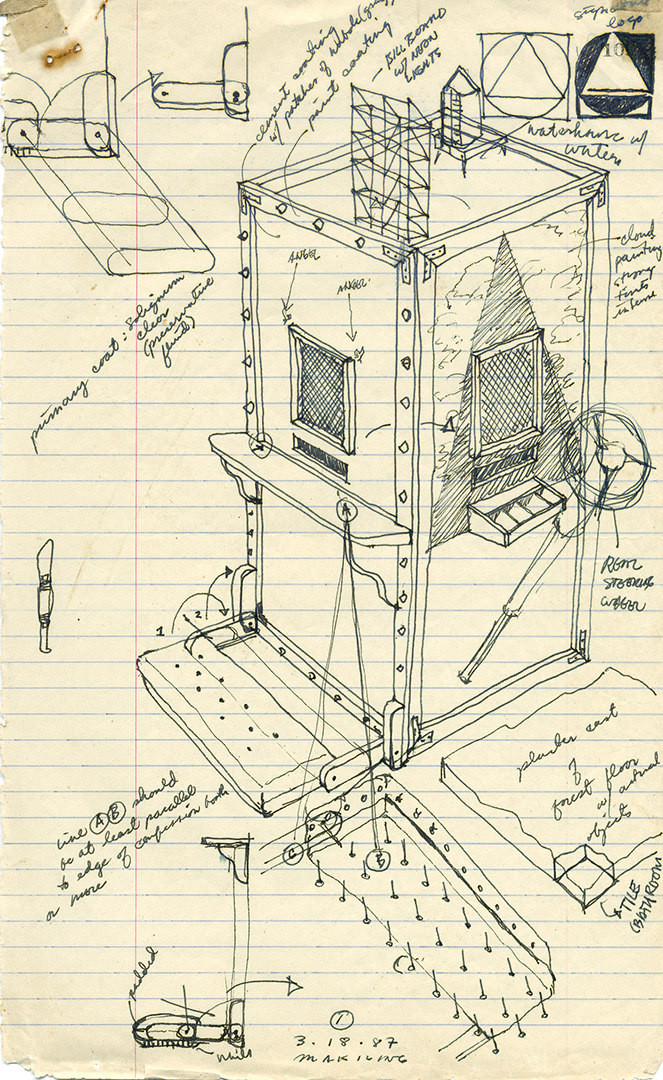 cement coating
w/ patches of
paint coating
BILL BOARD
w/ NEON
LIGHTS
logo
10
waterhouse w/
water
cloud
painting
strong
tints
intense
ANGEL
ANGEL
primary coat: Solignum
clear
(preservative
fluid)
A
REAL
STEERING
WHEEL
1
2
plaster cast
of
forest floor
w/ actual
objects
TILE
(BATHROOM
line A B should
be at least parallel
to edge of confession booth
or more
C
B
C
padded
nails
1
3.18.87
MAKILING